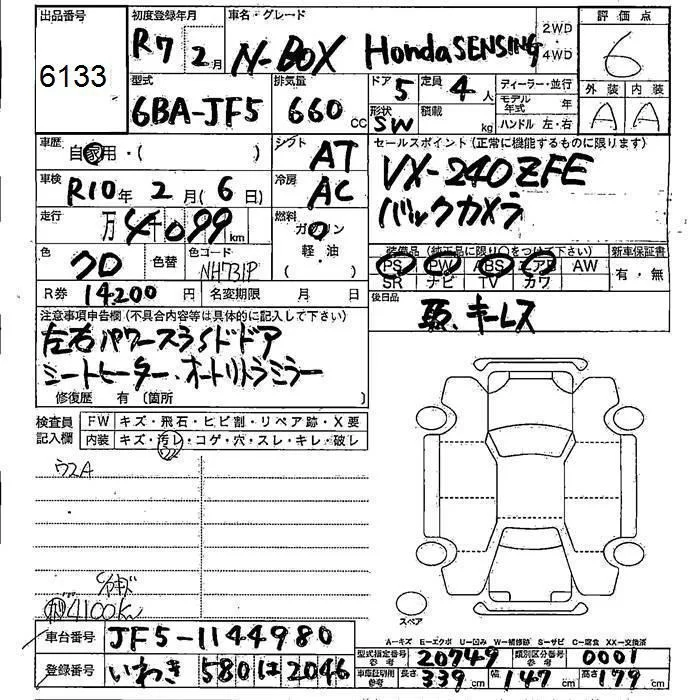 出品番号
6133
初度登録年月
R7 2月
車名・グレード
N-BOX Honda SENSING
2WD
4WD
評価点
6
外装 内装
A A
型式
6BA-JF5
排気量
660 cc
ドア
5
定員
4人
形状
SW
積載
kg
ディーラー・並行
モデル年式 年
ハンドル 左・右
車歴
自家用・( )
シフト
AT
セールスポイント(正常に機能するものに限ります)
VX-240ZFE
バックカメラ
車検
R10年 2月(6日)
冷房
AC
走行
万 4千099km
燃料
ガソリン
軽・油
( )
色
クロ
色替
色コード
NH731P
装備品(純正品に限り○をつけて下さい)
PS PW ABS エアB AW
SR ナビ TV カワ
新車保証書
有・無
R券 14200円
名変期限 月 日
後日品
取、キーレス
注意事項申告欄(不具合内容等は具体的に記入して下さい)
左右パワースライドドア
シートヒーター・オートリトラミラー
修復歴 有(箇所 )
検査員
記入欄
FW キズ・飛石・ヒビ割・リペア跡・X要
内装 キズ・汚レ・コゲ・穴・スレ・キレ・破レ
ウスA
4100km
スペア
A-キズ E-エクボ U-凹み W-補修跡 S-サビ C-腐食 XX-交換済
車台番号
JF5-1144980
登録番号
いわき 580 は 2046
型式指定番号
参考
20749
類別区分番号
参考
0001
車検証印用
参考
長さ 339cm 幅 147cm 高さ 179cm